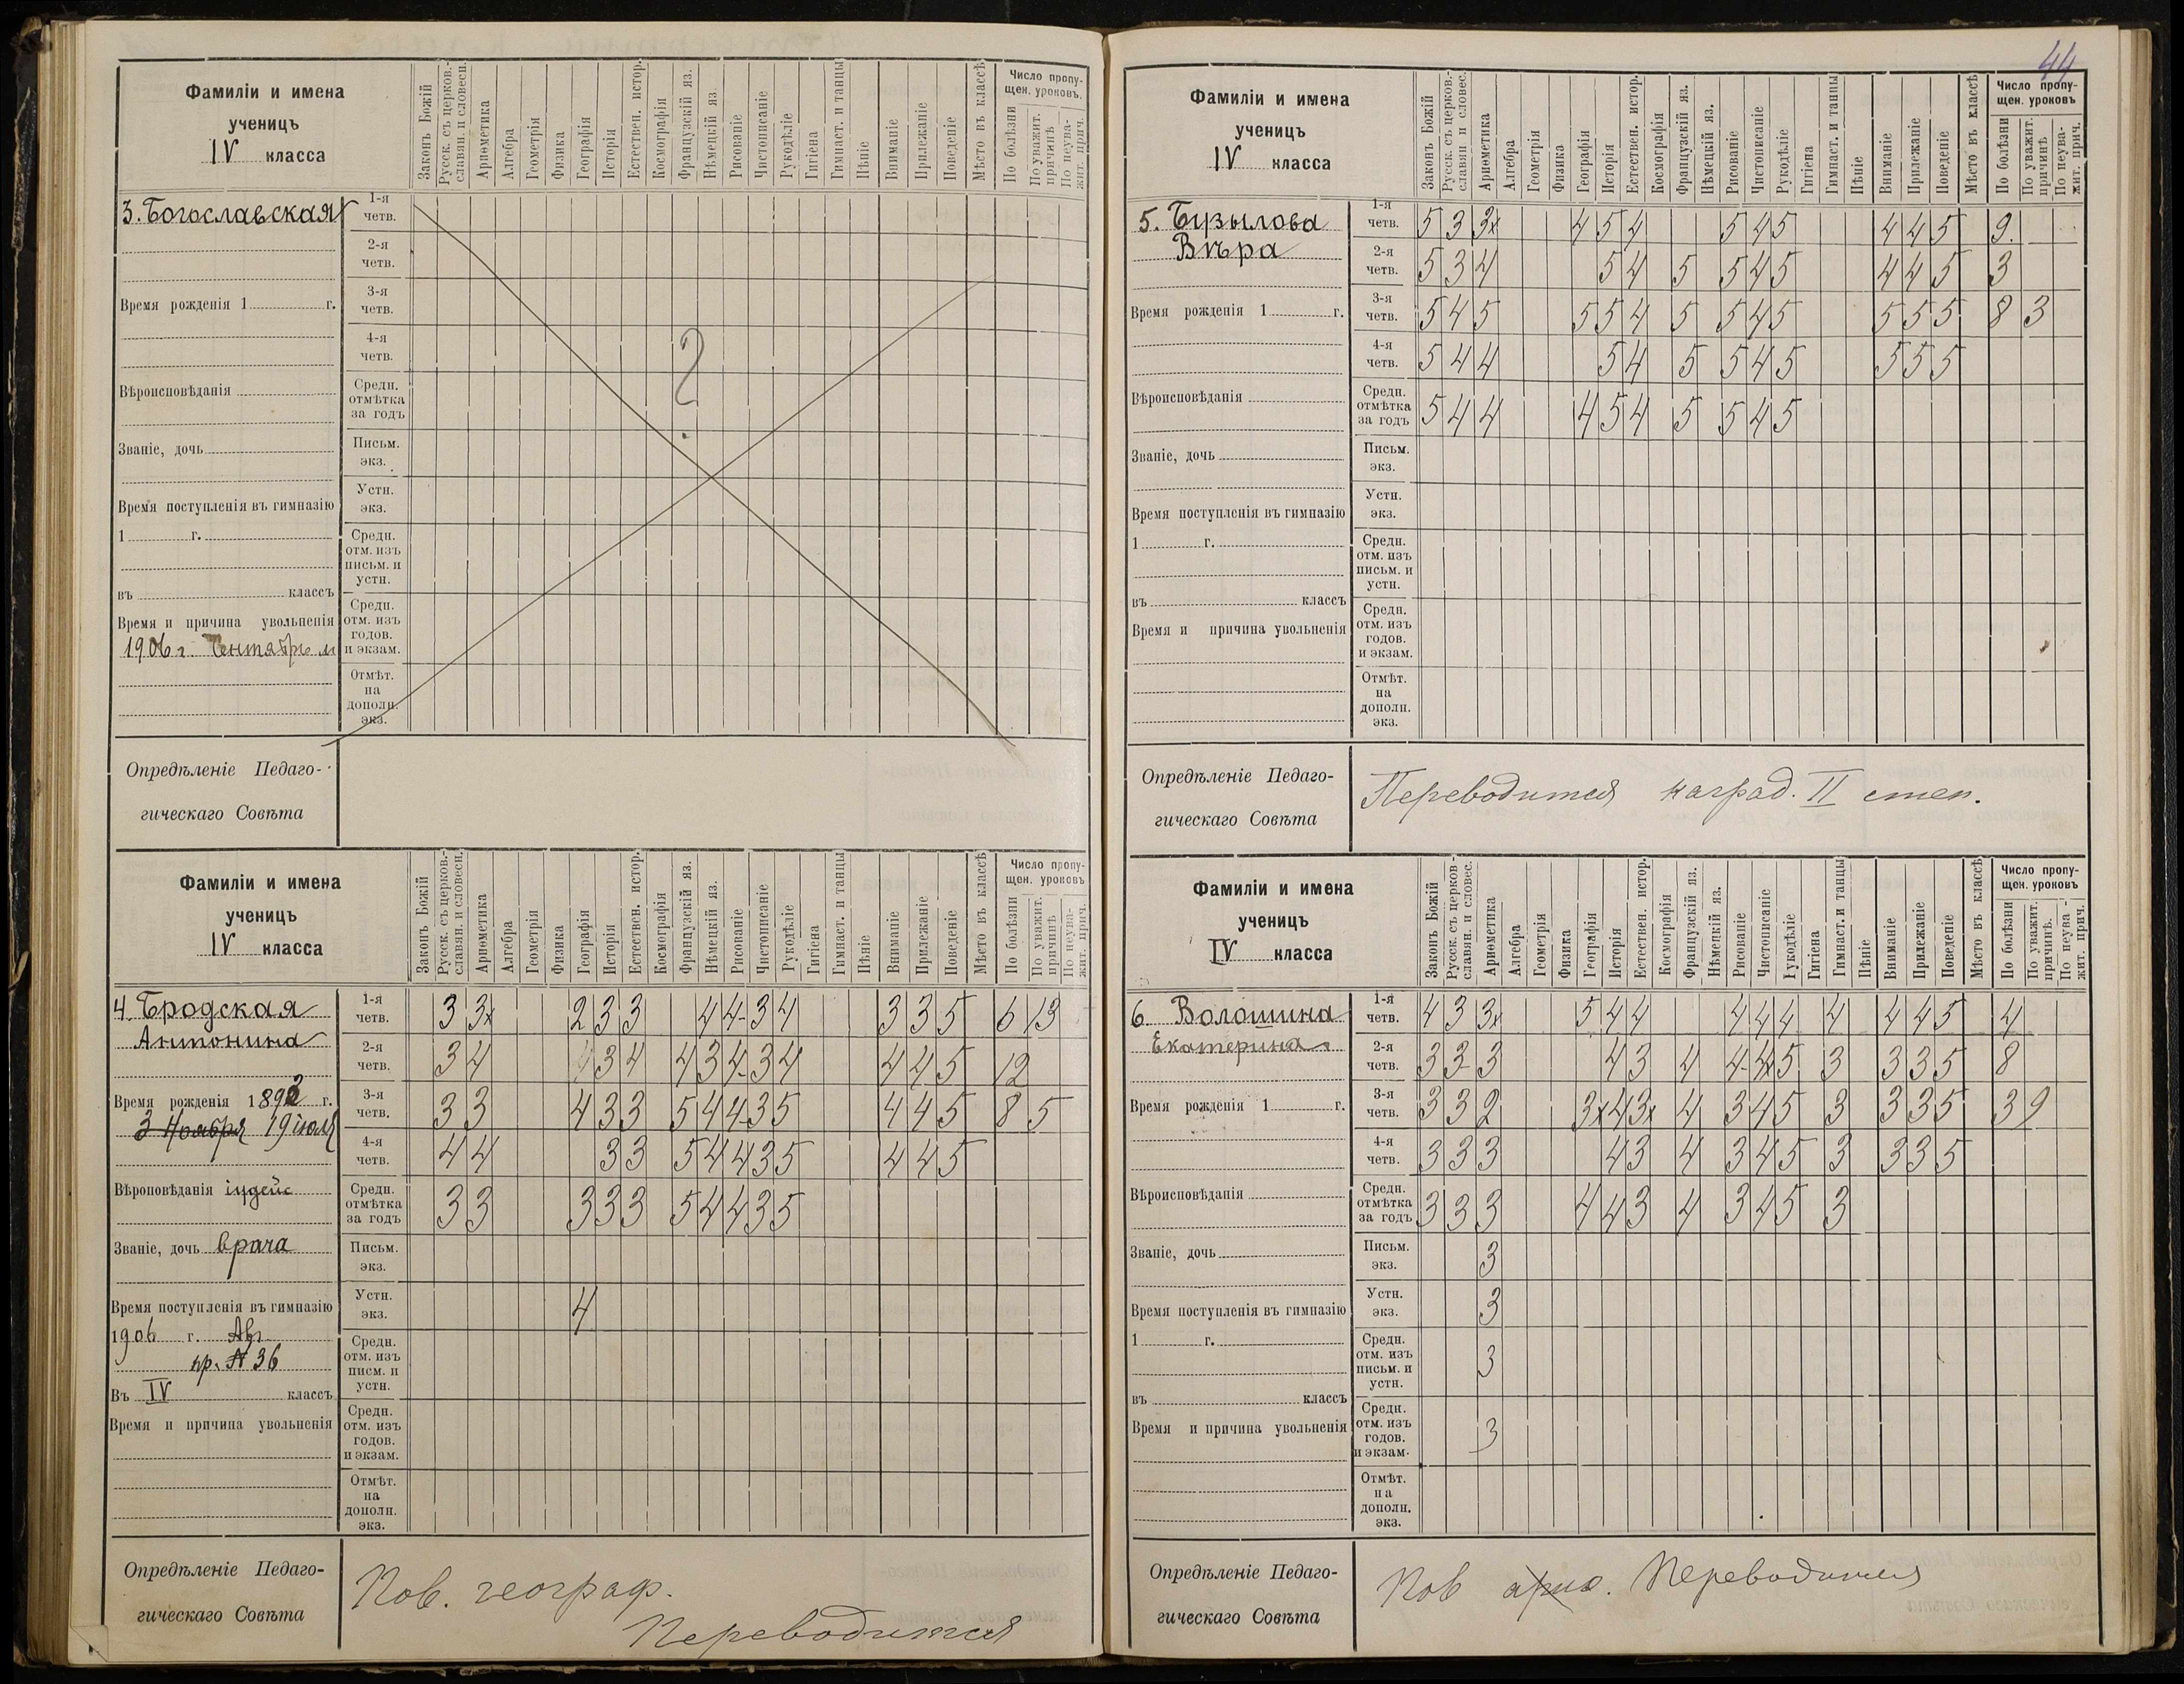 Фамиліи и имена
ученицъ
IV класса
Законъ Божій
Русск. съ церков.-
славян. и словесн.
Ариѳметика
Алгебра
Геометрія
Физика
Географія
Исторія
Естествен. истор.
Космографія
Французскій яз.
Нѣмецкій яз.
Рисованіе
Чистописаніе
Рукодѣліе
Гигіена
Гимнаст. и танцы
Пѣніе
Вниманіе
Прилежаніе
Поведеніе
Мѣсто въ классѣ
Число пропу-
щен. уроковъ.
По болѣзни
По уважит.
причинѣ
По неува-
жит. прич.
3. Богославская
1-я
четв.
2-я
четв.
Время рожденія 1 г.
3-я
четв.
4-я
четв.
?
Вѣроисповѣданія
Средн.
отмѣтка
за годъ
Званіе, дочь
Письм.
экз.
Время поступленія въ гимназію
Устн.
экз.
1 г.
Средн.
отм. изъ
письм. и
устн.
въ классъ
Время и причина увольненія
1906 г.
Средн.
отм. изъ
годов.
и экзам.
Отмѣт.
на
дополн.
экз.
Опредѣленіе Педаго-
гическаго Совѣта
Фамиліи и имена
ученицъ
IV класса
Законъ Божій
Русск. съ церков.-
славян. и словесн.
Ариѳметика
Алгебра
Геометрія
Физика
Географія
Исторія
Естествен. истор.
Космографія
Французскій яз.
Нѣмецкій яз.
Рисованіе
Чистописаніе
Рукодѣліе
Гигіена
Гимнаст. и танцы
Пѣніе
Вниманіе
Прилежаніе
Поведеніе
Мѣсто въ классѣ
Число пропу-
щен. уроковъ
По болѣзни
По уважит.
причинѣ
По неува-
жит. прич.
4. Бродская
Антонина
1-я четв. 3 3х 2 3 3 4 4- 3 4 3 3 5 6 13
2-я четв. 3 4 3 4 4 3 4- 3 4 4 4 5 12
Время рожденія 1892 г.
3 Ноября 19 іюля
3-я четв. 3 3 4 3 3 5 4 4 3 5 4 4 5 8 5
4-я четв. 4 4 3 3 5 4 4 3 5 4 4 5
Вѣроповѣданія іудейс
Средн. отмѣтка за годъ 3 3 3 3 3 5 4 4 3 5
Званіе, дочь врача
Письм.
экз.
Время поступленія въ гимназію
1906 г. Авг
пр. № 36
Устн. экз. 4
Средн.
отм. изъ
писм. и
устн.
Въ IV классъ
Время и причина увольненія
Средн.
отм. изъ
годов.
и экзам.
Отмѣт.
на
дополн.
экз.
Опредѣленіе Педаго-
гическаго Совѣта
Пов. географ.
Переводится
44
Фамиліи и имена
ученицъ
IV класса
Законъ Божій
Русск. съ церков.-
славян. и словес.
Ариѳметика
Алгебра
Геометрія
Физика
Географія
Исторія
Естествен. истор.
Космографія
Французскій яз.
Нѣмецкій яз.
Рисованіе
Чистописаніе
Рукодѣліе
Гигіена
Гимнаст. и танцы
Пѣніе
Вниманіе
Прилежаніе
Поведеніе
Мѣсто въ классѣ
Число пропу-
щен. уроковъ
По болѣзни
По уважит.
причинѣ
По неува-
жит. прич.
5. Бузылова
Вѣра
1-я четв. 5 3 3х 4 5 4 5 4 5 4 4 5 9.
2-я четв. 5 3 4 5 4 5 5 4 5 4 4 5 3
Время рожденія 1 г.
3-я четв. 5 4 5 5 5 4 5 5 4 5 5 5 5 8 3
4-я четв. 5 4 4 5 4 5 5 4 5 5 5 5
Вѣроисповѣданія
Средн. отмѣтка за годъ 5 4 4 4 5 4 5 5 4 5
Званіе, дочь
Письм.
экз.
Время поступленія въ гимназію
Устн.
экз.
1 г.
Средн.
отм. изъ
письм. и
устн.
въ классъ
Время и причина увольненія
Средн.
отм. изъ
годов.
и экзам.
Отмѣт.
на
дополн.
экз.
Опредѣленіе Педаго-
гическаго Совѣта
Переводится наград. II степ.
Фамиліи и имена
ученицъ
IV класса
Законъ Божій
Русск. съ церков-
славян. и словес.
Ариѳметика
Алгебра
Геометрія
Физика
Географія
Исторія
Естествен. истор.
Космографія
Французскій яз.
Нѣмецкій яз.
Рисованіе
Чистописаніе
Рукодѣліе
Гигіена
Гимнаст. и танцы
Пѣніе
Вниманіе
Прилежаніе
Поведеніе
Мѣсто въ классѣ
Число пропу-
щен. уроковъ
По болѣзни
По уважит.
причинѣ.
По неува-
жит. прич.
6. Волошина
Екатерина
1-я четв. 4 3 3х 5 4 4 4 4 4 4 4 4 5 4
2-я четв. 3 3- 3 4 3 4 4- 4 5 3 3 3 5 8
Время рожденія 1 г.
3-я четв. 3 3 2 3х 4 3х 4 3 4 5 3 3 3 5 3 9
4-я четв. 3 3 3 4 3 4 3 4 5 3 3 3 5
Вѣроисповѣданія
Средн. отмѣтка за годъ 3 3 3 4 4 3 4 3 4 5 3
Званіе, дочь
Письм. экз. 3
Время поступленія въ гимназію
Устн. экз. 3
1 г.
Средн. отм. изъ письм. и устн. 3
въ классъ
Время и причина увольненія
Средн. отм. изъ годов. и экзам. 3
Отмѣт.
на
дополн.
экз.
Опредѣленіе Педаго-
гическаго Совѣта
Пов ариѳ. Переводится